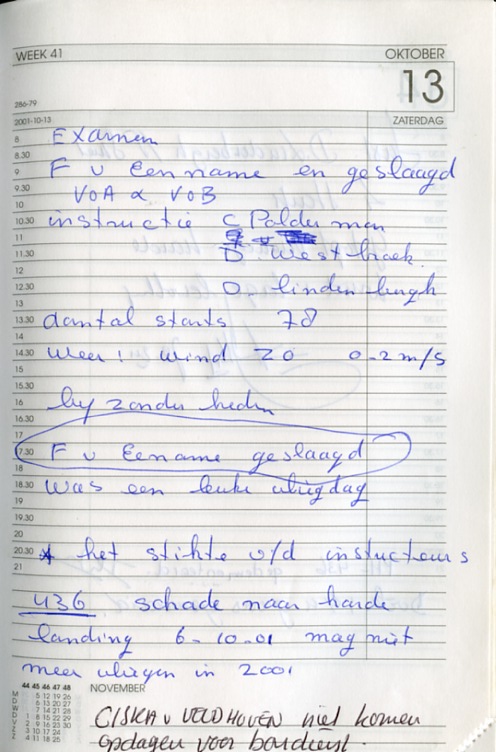 WEEK 41
OKTOBER
13
286-79
2001-10-13
ZATERDAG
8
Examen
8.30
9 F v Eenname en geslaagd
9.30
VOA & VOB
10
10.30 instructie C Polderman
11
11.30 D Westbroek.
12
12.30 D. lindenbergh
13
13.30 aantal starts 78
14
14.30 weer: wind ZO 0-2 m/s
15
15.30
16 byzonderheden
16.30
17
17.30 F v Eename geslaagd
18
18.30 was een leuke vliegdag
19
19.30
20
20.30 * het stikte v/d instucteurs
21
436 schade naar harde
landing 6-10-01 mag niet
meer vliegen in 2001
44 45 46 47 48
NOVEMBER
M 5 12 19 26
D 6 13 20 27
W 7 14 21 28
D 1 8 15 22 29
V 2 9 16 23 30
Z 3 10 17 24
Z 4 11 18 25
CISKA v VELDHOVEN niet komen
opdagen voor bardienst.